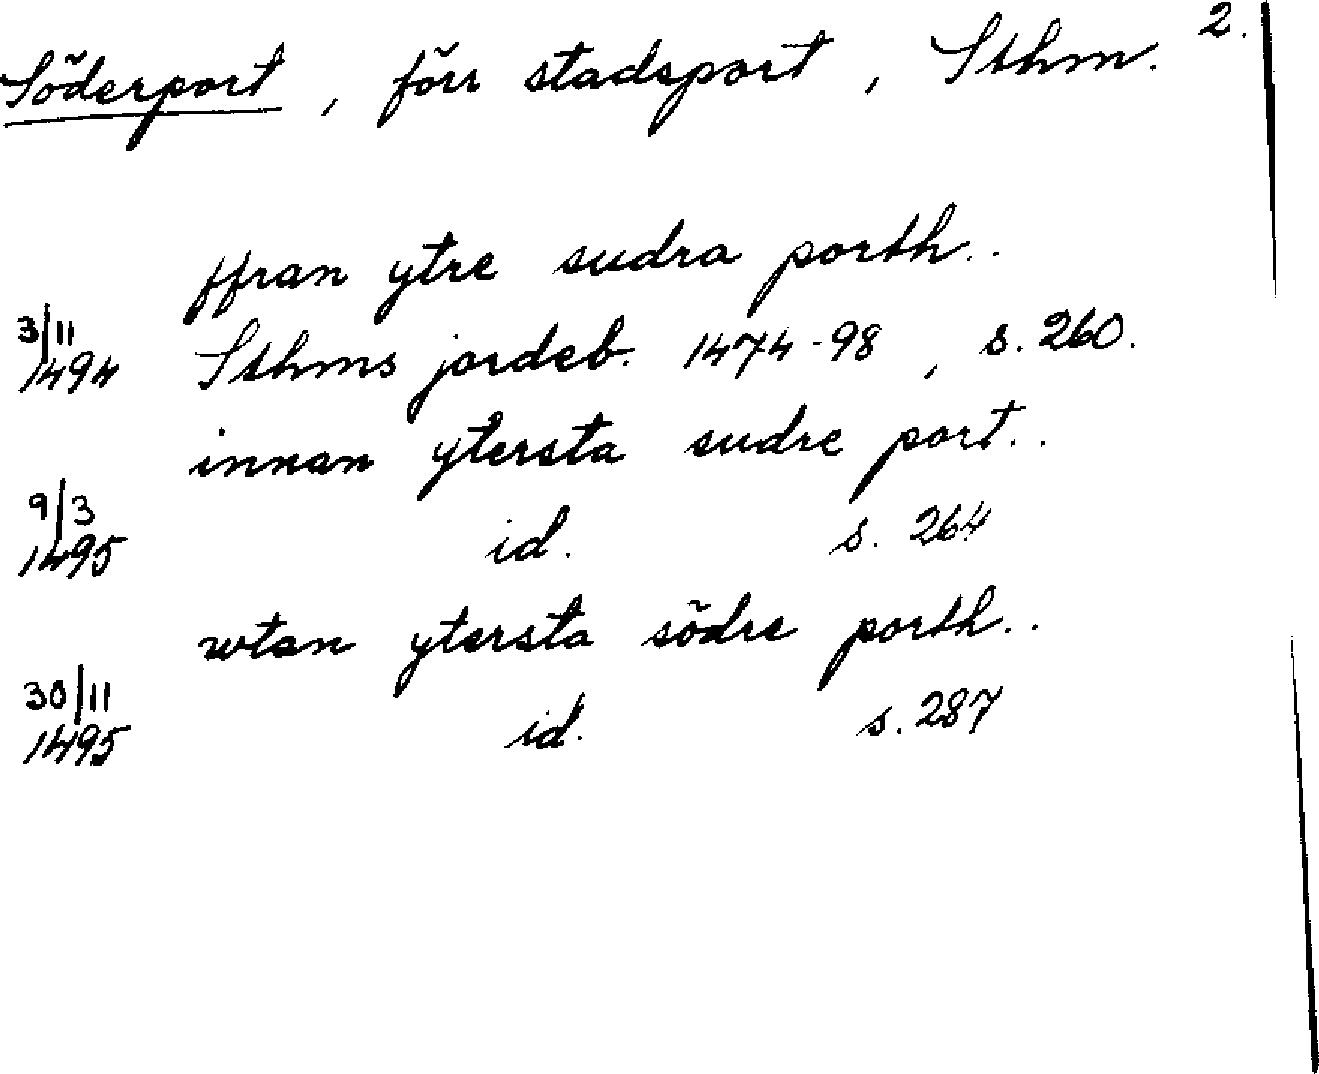 2.
Söderport, förr stadsport, Sthm.
ffran ytre sudra porth..
3/11 1494 Sthms jordeb. 1474-98, s. 260.
innan ytersta sudre port..
9/3 1495 id. s. 264
wtan ytersta södre porth..
30/11 1495 id. s. 287